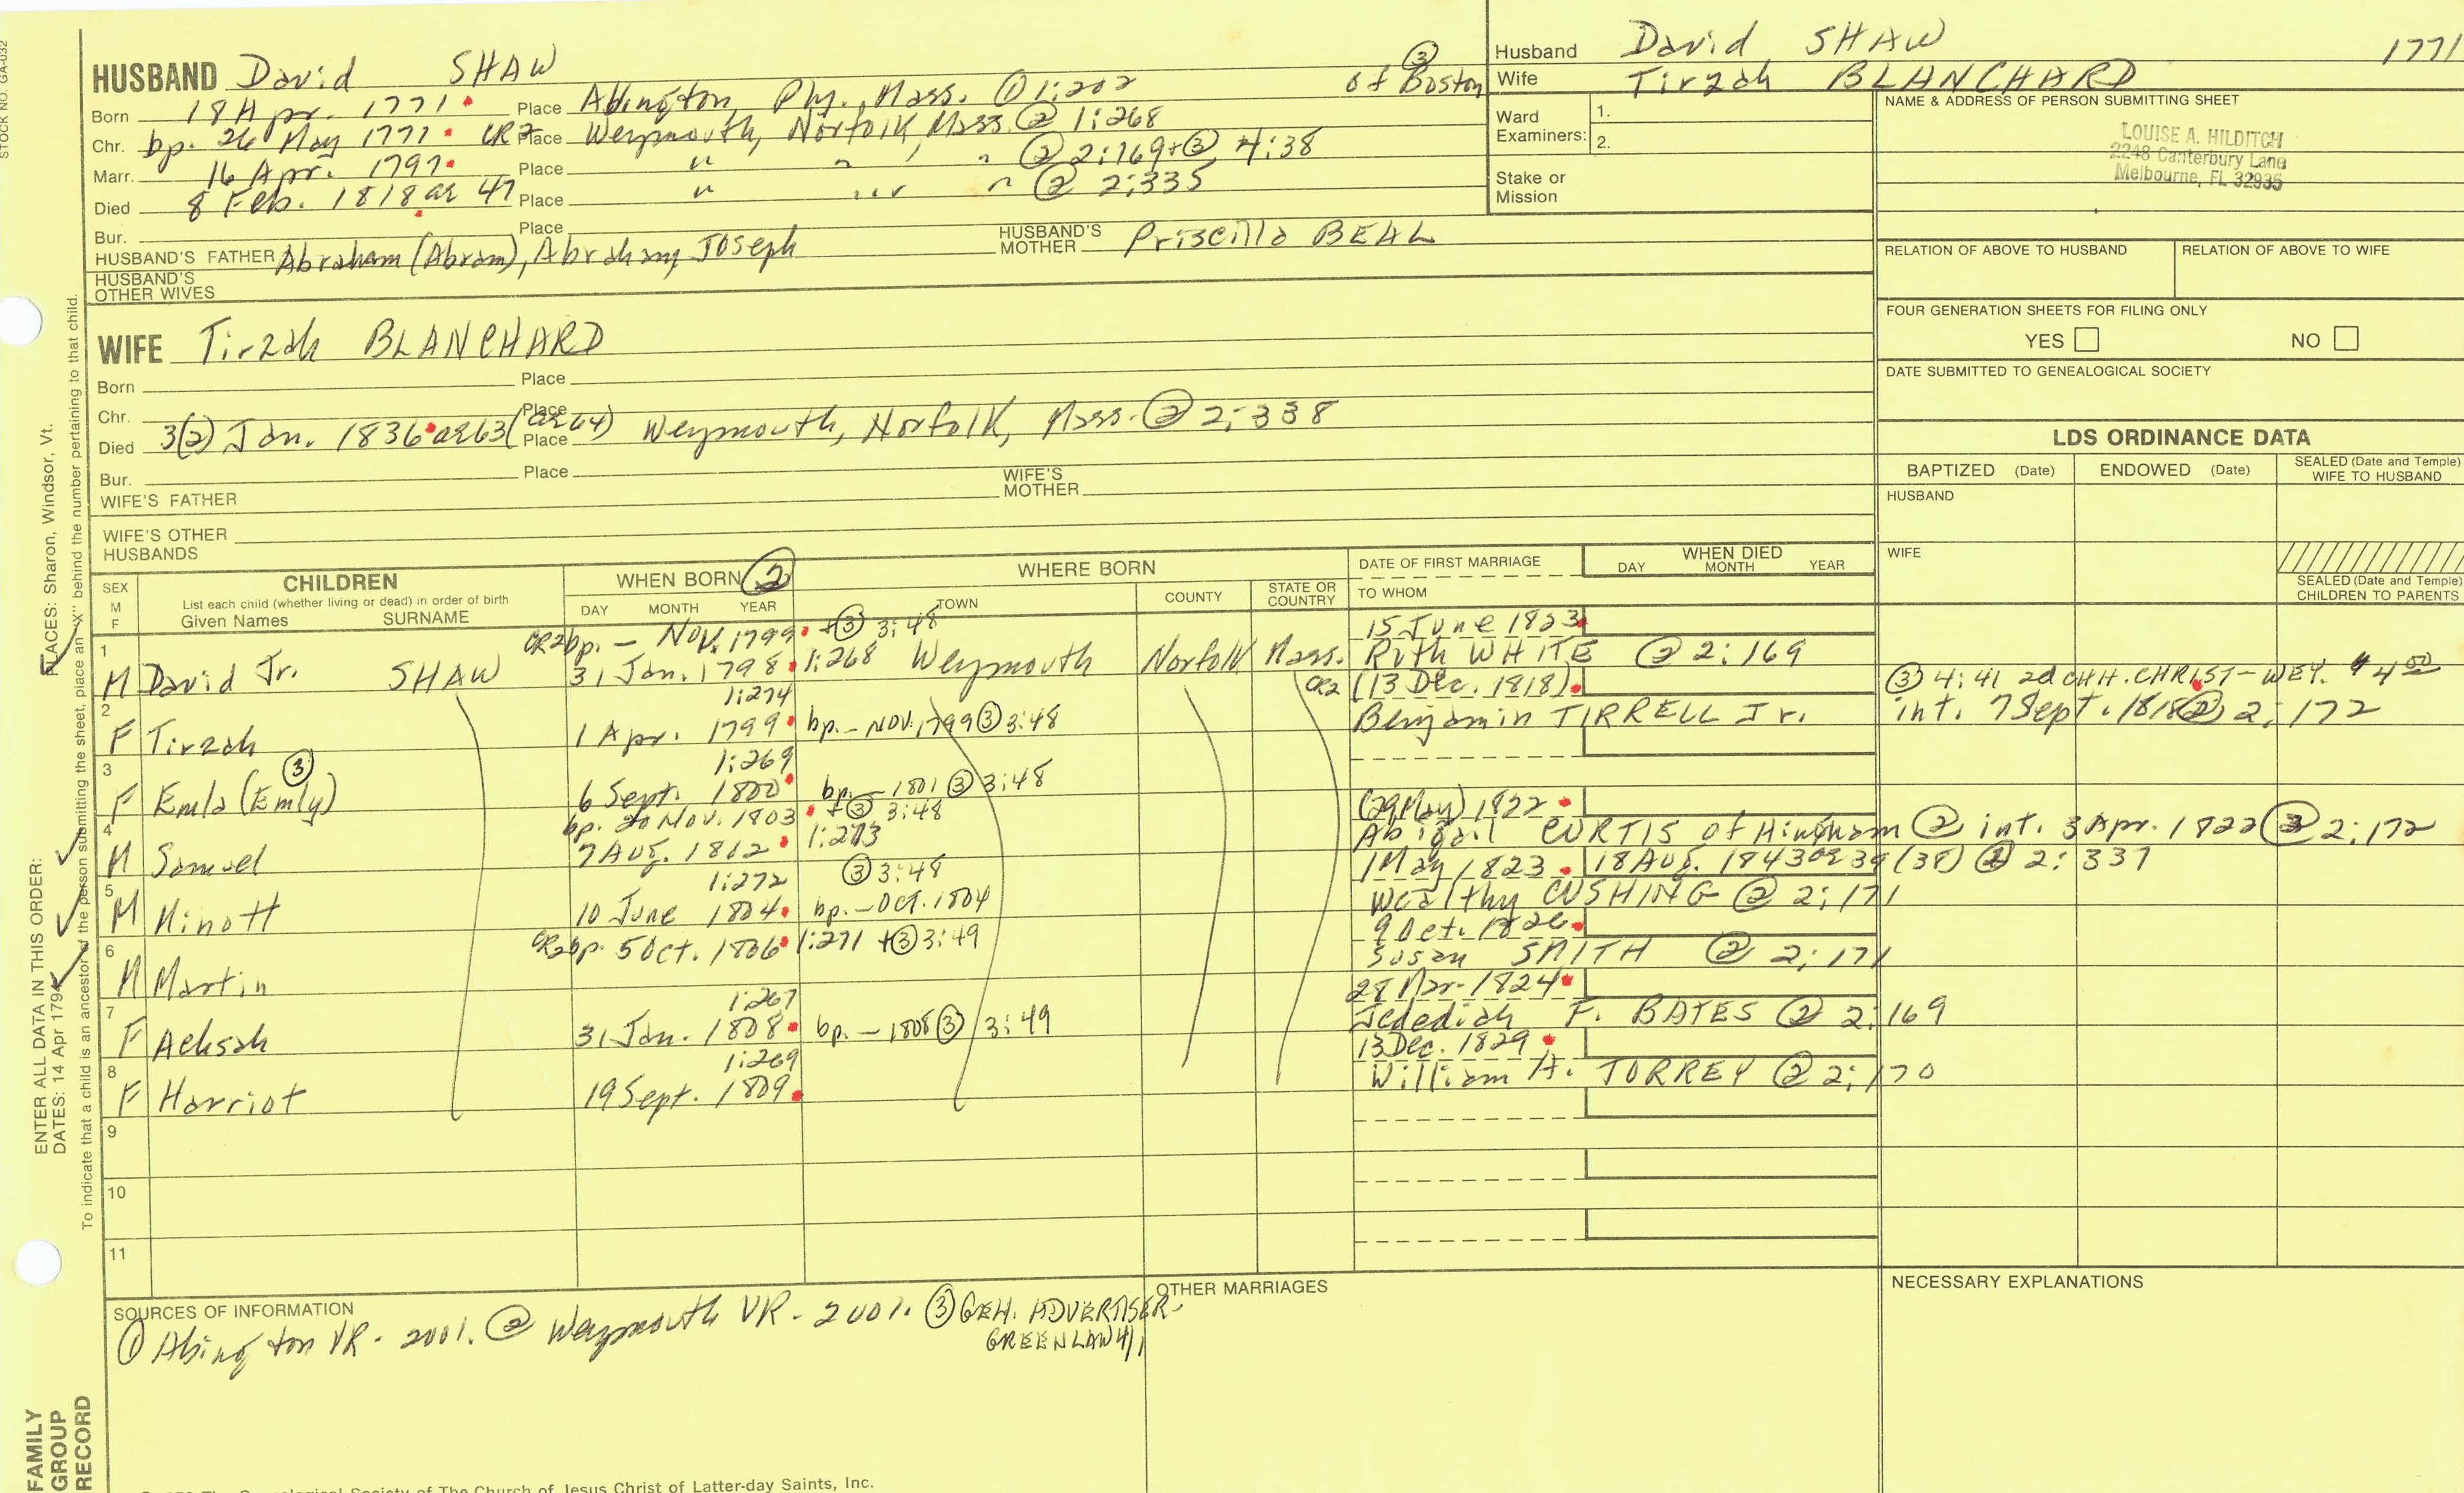 STOCK NO. GA-032
HUSBAND David SHAW
Born 18 Apr. 1771. Place Abington, Ply., Mass. ① 1:202 ③ of Boston
Chr. bp. 26 May 1771. CR2 Place Weymouth, Norfolk, Mass. ② 1:268
Marr. 16 Apr. 1797. Place " " " ② 2:169+③ 4:38
Died 8 Feb. 1818 ae 47 Place " " " ② 2:335
Bur. Place
HUSBAND'S FATHER Abraham (Abram), Abraham, Joseph HUSBAND'S MOTHER Priscilla BEAL
HUSBAND'S OTHER WIVES
WIFE Tirzah BLANCHARD
Born Place
Chr. Place
Died 3(2) Jan. 1836. ae 63 (ae 64) Place Weymouth, Norfolk, Mass. ② 2:338
Bur. Place
WIFE'S FATHER WIFE'S MOTHER
WIFE'S OTHER HUSBANDS
Husband David SHAW 1771
Wife Tirzah BLANCHARD
Ward Examiners: 1.
2.
Stake or Mission
NAME & ADDRESS OF PERSON SUBMITTING SHEET
LOUISE A. HILDITCH
2248 Canterbury Lane
Melbourne, FL 32935
RELATION OF ABOVE TO HUSBAND RELATION OF ABOVE TO WIFE
FOUR GENERATION SHEETS FOR FILING ONLY
YES NO
DATE SUBMITTED TO GENEALOGICAL SOCIETY
LDS ORDINANCE DATA
BAPTIZED (Date) ENDOWED (Date) SEALED (Date and Temple) WIFE TO HUSBAND
HUSBAND
WIFE
SEALED (Date and Temple) CHILDREN TO PARENTS
SEX M F
CHILDREN
List each child (whether living or dead) in order of birth
Given Names SURNAME
WHEN BORN ②
DAY MONTH YEAR
WHERE BORN
TOWN COUNTY STATE OR COUNTRY
DATE OF FIRST MARRIAGE
TO WHOM
WHEN DIED
DAY MONTH YEAR
1 CR2 bp. - Nov. 1799. +③ 3:48 15 June 1823.
M David Jr. SHAW 31 Jan. 1798. 1:268 Weymouth Norfolk Mass. Ruth WHITE ② 2:169
2 1:274 CR2 (13 Dec. 1818). ③ 4:41 2d CHH. CHRIST-WEY. $4.00
F Tirzah 1 Apr. 1799. bp. - Nov. 1799 ③ 3:48 Benjamin TIRRELL Jr. int. 7 Sept. 1818 ② 2:172
3 ③ 1:269
F Emla (Emly) 6 Sept. 1800. bp. - 1801 ③ 3:48
4 bp. 20 Nov. 1803. +③ 3:48 (29 May) 1822.
M Samuel 7 Aug. 1802. 1:273 Abigail CURTIS of Hingham ② int. 3 Apr. 1822 ② 2:172
5 1:272 ③ 3:48 1 May 1823. 18 Aug. 1843 ae 39 (38) ② 2:337
M Minott 10 June 1804. bp. - Oct. 1804 Wealthy CUSHING ② 2:171
6 CR2 bp. 5 Oct. 1806. 1:271 +③ 3:49 9 Oct. 1826.
M Martin Susan SMITH ② 2:171
7 1:267 28 Mar. 1824.
F Achsah 31 Jan. 1808. bp. - 1808 ③ 3:49 Jedediah F. BATES ② 2:169
8 1:269 13 Dec. 1829.
F Harriot 19 Sept. 1809. William H. TORREY ② 2:170
9
10
11
SOURCES OF INFORMATION
① Abington VR - 2001. ② Weymouth VR - 2001. ③ GEN. ADVERTISER -
GREENLAW
OTHER MARRIAGES
NECESSARY EXPLANATIONS
ENTER ALL DATA IN THIS ORDER:
DATES: 14 Apr 179
PLACES: Sharon, Windsor, Vt.
To indicate that a child is an ancestor of the person submitting the sheet, place an "X" behind the number pertaining to that child.
FAMILY
GROUP
RECORD
The Genealogical Society of The Church of Jesus Christ of Latter-day Saints, Inc.